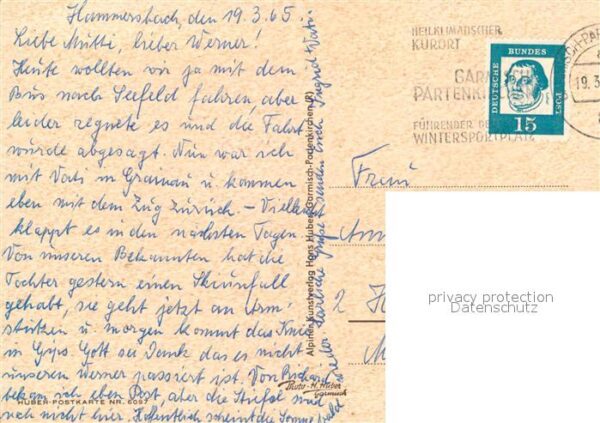 Hammersbach, den 19.3.65.
Liebe Mutti, lieber Werner!
Heute wollten wir ja mit dem
Bus nach Seefeld fahren, aber
leider regnete es und die Fahrt
wurde abgesagt. Nun war ich
mit Vati in Grainau u. kommen
eben mit dem Zug zurück. – Vielleicht
klappt es in den nächsten Tagen.
Von unseren Bekannten hat die
Tochter gestern einen Skiunfall
gehabt, sie geht jetzt an Arm-
stützen u. morgen kommt das Knie
in Gips. Gott sei Dank das es nicht
unserem Werner passiert ist. Von Richard
bekam ich eben Post, aber die Stiefel sind
noch nicht hier. Hoffentlich scheint die Sonne bald
wieder. Herzliche Grüße senden Euch Ingrid u. Vati
HUBER-POSTKARTE NR. 6097
Alpiner Kunstverlag Hans Huber, Garmisch-Partenkirchen (R)
Photo-H. Huber
Garmisch
HEILKLIMATISCHER
KURORT
GARM
PARTENKI
FÜHRENDER DE
WINTERSPORTPLATZ
DEUTSCHE BUNDES POST
15
SCH-PAR
19.3
Frau
2
privacy protection
Datenschutz